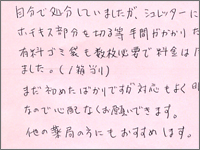 自分で処分していましたが、シュレッターに
ホッチキス部分を切る等手間がかかり
有料ゴミ袋も数枚必要で料金は
ました。(1箱当り)
まだ初めたばかりですが対応もよく
なので心配なくお願いできます。
他の薬局の方にもおすすめします。